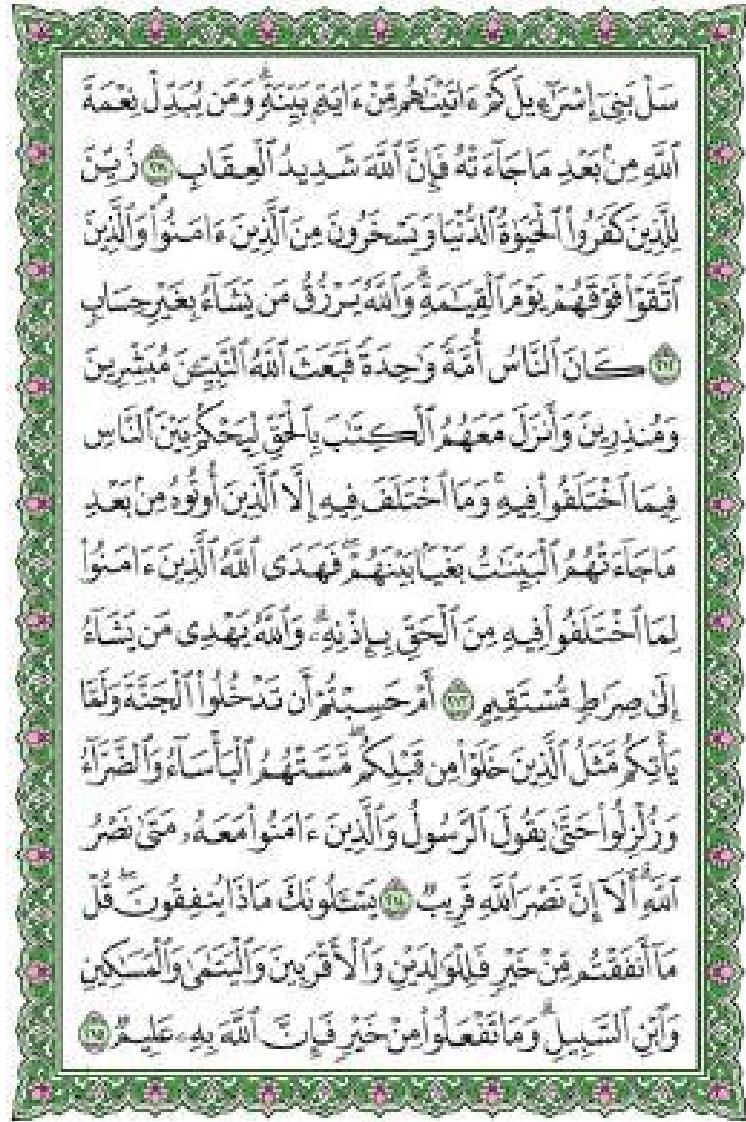 سَلْ بَنِىٓ إِسْرَٰٓءِيلَ كَمْ ءَاتَيْنَٰهُم مِّنْ ءَايَةٍۭ بَيِّنَةٍۗ وَمَن يُبَدِّلْ نِعْمَةَ
ٱللَّهِ مِنۢ بَعْدِ مَا جَآءَتْهُ فَإِنَّ ٱللَّهَ شَدِيدُ ٱلْعِقَابِ ٢١١ زُيِّنَ
لِلَّذِينَ كَفَرُوا۟ ٱلْحَيَوٰةُ ٱلدُّنْيَا وَيَسْخَرُونَ مِنَ ٱلَّذِينَ ءَامَنُوا۟ۘ وَٱلَّذِينَ
ٱتَّقَوْا۟ فَوْقَهُمْ يَوْمَ ٱلْقِيَٰمَةِۗ وَٱللَّهُ يَرْزُقُ مَن يَشَآءُ بِغَيْرِ حِسَابٍ
٢١٢ كَانَ ٱلنَّاسُ أُمَّةً وَٰحِدَةً فَبَعَثَ ٱللَّهُ ٱلنَّبِيِّۦنَ مُبَشِّرِينَ
وَمُنذِرِينَ وَأَنزَلَ مَعَهُمُ ٱلْكِتَٰبَ بِٱلْحَقِّ لِيَحْكُمَ بَيْنَ ٱلنَّاسِ
فِيمَا ٱخْتَلَفُوا۟ فِيهِۚ وَمَا ٱخْتَلَفَ فِيهِ إِلَّا ٱلَّذِينَ أُوتُوهُ مِنۢ بَعْدِ
مَا جَآءَتْهُمُ ٱلْبَيِّنَٰتُ بَغْيًۢا بَيْنَهُمْۖ فَهَدَى ٱللَّهُ ٱلَّذِينَ ءَامَنُوا۟
لِمَا ٱخْتَلَفُوا۟ فِيهِ مِنَ ٱلْحَقِّ بِإِذْنِهِۦۗ وَٱللَّهُ يَهْدِى مَن يَشَآءُ
إِلَىٰ صِرَٰطٍ مُّسْتَقِيمٍ ٢١٣ أَمْ حَسِبْتُمْ أَن تَدْخُلُوا۟ ٱلْجَنَّةَ وَلَمَّا
يَأْتِكُم مَّثَلُ ٱلَّذِينَ خَلَوْا۟ مِن قَبْلِكُمۖ مَّسَّتْهُمُ ٱلْبَأْسَآءُ وَٱلضَّرَّآءُ
وَزُلْزِلُوا۟ حَتَّىٰ يَقُولَ ٱلرَّسُولُ وَٱلَّذِينَ ءَامَنُوا۟ مَعَهُۥ مَتَىٰ نَصْرُ
ٱللَّهِۗ أَلَآ إِنَّ نَصْرَ ٱللَّهِ قَرِيبٌ ٢١٤ يَسْـَٔلُونَكَ مَاذَا يُنفِقُونَۖ قُلْ
مَآ أَنفَقْتُم مِّنْ خَيْرٍ فَلِلْوَٰلِدَيْنِ وَٱلْأَقْرَبِينَ وَٱلْيَتَٰمَىٰ وَٱلْمَسَٰكِينِ
وَٱبْنِ ٱلسَّبِيلِۗ وَمَا تَفْعَلُوا۟ مِنْ خَيْرٍ فَإِنَّ ٱللَّهَ بِهِۦ عَلِيمٌ ٢١٥